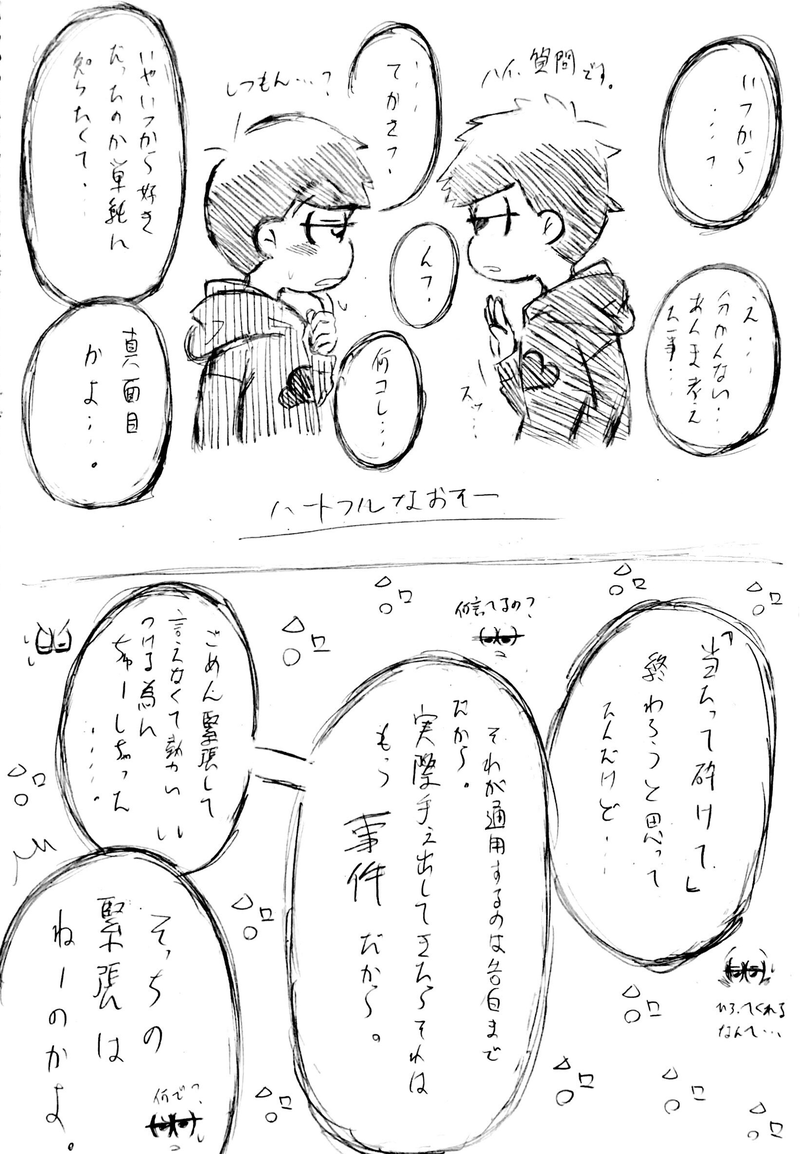 ハイ、質問です。
いつから
……?
え……
分かんない…
あんま考え
た事……
しつもん…?
……
てかさっ、
んっ、
何コレ…
スッ…
いやいつから好き
だったのか単純に
知りたくて……
真面目
かよ……。
ハートフルなおそー
「当たって砕けて」
終わろうと思って
たんだけど…
何言ってるの?
それが通用するのは告白まで
だから。
実際手え出してきたらそれは
もう事件だから。
ごめん緊張して
言えなくて勢い
つける為に
ちゅーしちゃった
……
そっちの
緊張は
ねーのかよ。
何で?
なんて…